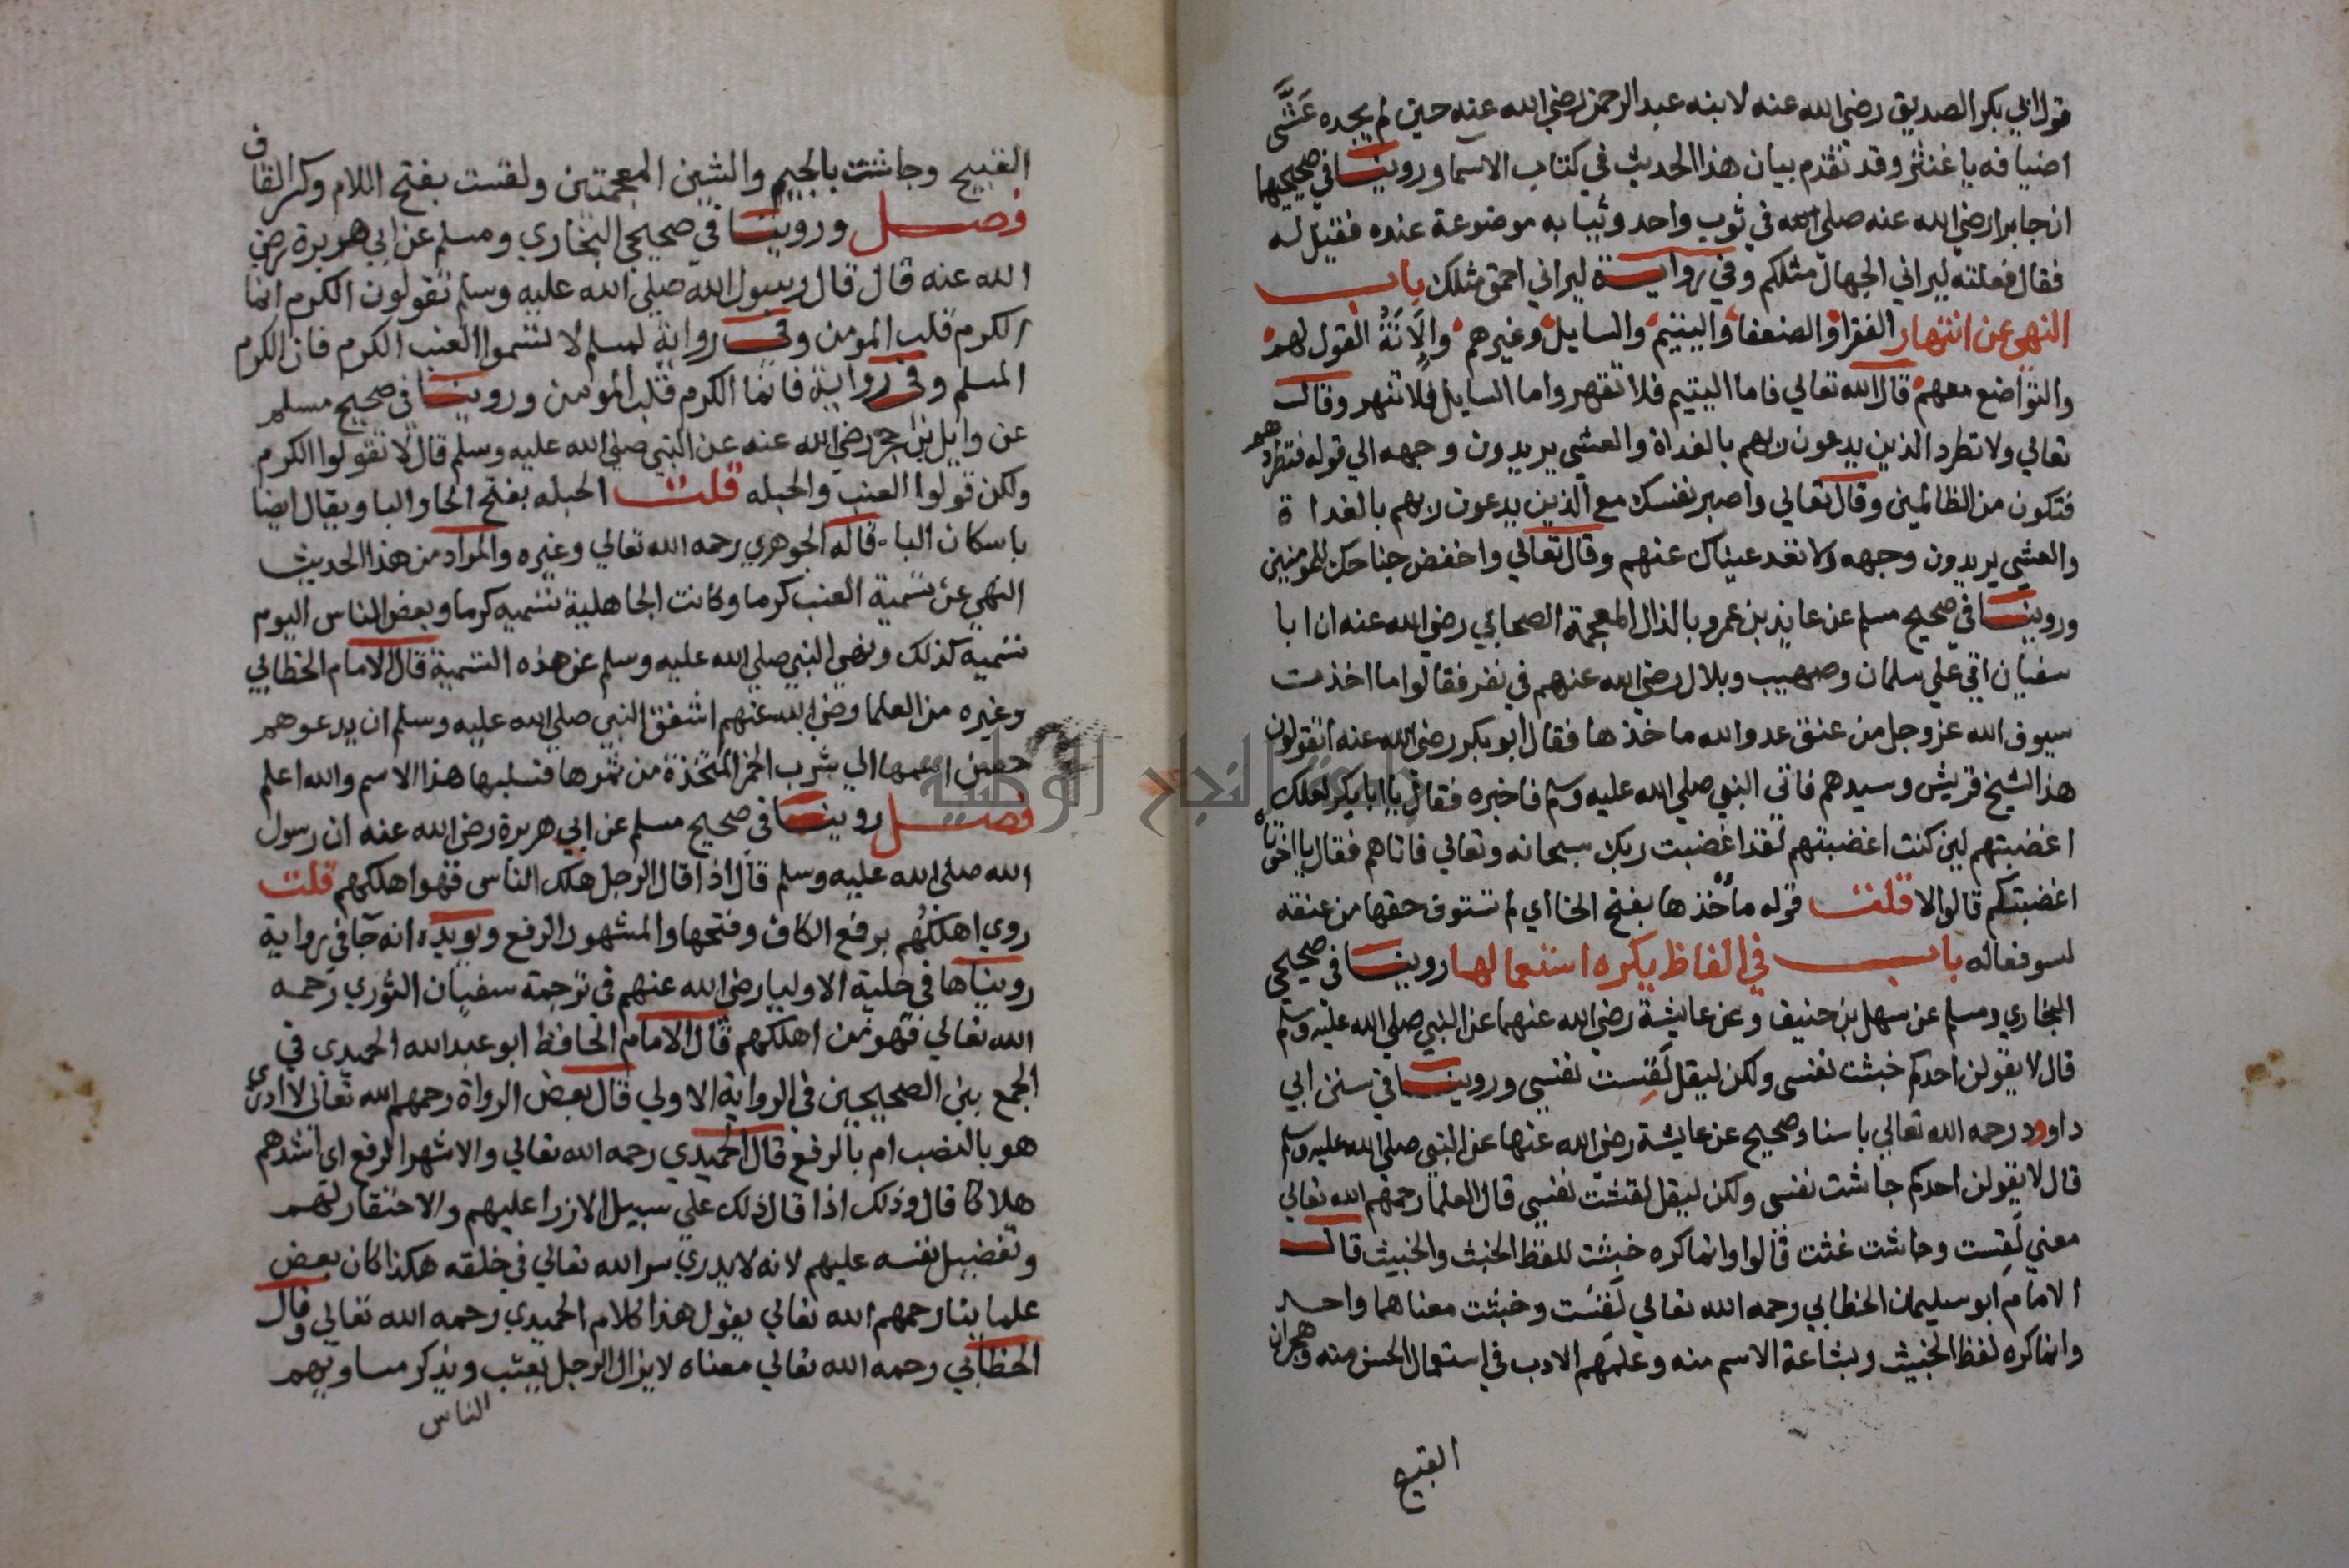 قول ابي بكر الصديق رضي الله عنه لابنه عبد الرحمن رضي الله عنه حين لم يجده عَشَّى
اضيافه يا غنثر وقد تقدم بيان هذا الحديث في كتاب الاسما وروينا في صحيحيهما
ان جابرا رضي الله عنه صلى الله في ثوب واحد وثيابه موضوعة عنده فقيل له
فقال فعلته ليراني الجهال مثلكم وفي رواية ليراني احمق مثلك باب
النهي عن انتهار الفقرا والضعفا واليتيم والسايل وغيرهم والانة القول لهم
والتواضع معهم قال الله تعالي فاما اليتيم فلا تقهر واما السايل فلا تنهر وقال
تعالي ولا تطرد الذين يدعون ربهم بالغداة والعشي يريدون وجهه الي قوله فتطردهم
فتكون من الظالمين وقال تعالي واصبر نفسك مع الذين يدعون ربهم بالغداة
والعشي يريدون وجهه ولا تعد عيناك عنهم وقال تعالي واخفض جناحك للمومنين
وروينا في صحيح مسلم عن عايذ بن عمرو بالذال المعجمة الصحابي رضي الله عنه ان ابا
سفيان اتي علي سلمان وصهيب وبلال رضي الله عنهم في نفر فقالوا ما اخذت
سيوف الله عز وجل من عنق عدو الله ماخذها فقال ابو بكر رضي الله عنه اتقولون
هذا لشيخ قريش وسيدهم فاتي النبي صلي الله عليه وسلم فاخبره فقال يا ابا بكر لعلك
اغضبتهم لين كنت اغضبتهم لقد اغضبت ربك سبحانه وتعالي فاتاهم فقال يا اخوتاه
اغضبتكم قالوا لا قلت قوله مأخذها بفتح الخا اي لم تستوف حقها من عنقه
لسو فعاله باب في الفاظ يكره استعمالها روينا في صحيحي
البخاري ومسلم عن سهل بن حنيف وعن عايشة رضي الله عنهما عن النبي صلي الله عليه وسلم
قال لا يقولن احدكم خبثت نفسى ولكن ليقل لَقِسَت نفسي وروينا في سنن ابي
داوود رحمه الله تعالي باسناد صحيح عن عايشة رضي الله عنها عن النبي صلي الله عليه وسلم
قال لا يقولن احدكم جاشت نفسى ولكن ليقل لقست نفسي قال العلما رحمهم الله تعالي
معني لَقِست وجاشت غثت قالوا وانما كره خبثت للفظ الخبث والخبيث قال
الامام ابو سليمان الخطابي رحمه الله تعالي لَقسَت وخبثت معناهما واحد
وانما كره لفظ الخبيث وبشاعة الاسم منه وعلمهم الادب في استعمال الحسن منه وهجران
القبيح
القبيح وجاشت بالجيم والشين المعجمتين ولقست بفتح اللام وكسر القاف
فصل وروينا في صحيحي البخاري ومسلم عن ابي هويرة رضي
الله عنه قال قال رسول الله صلي الله عليه وسلم تقولون الكرم انما
الكرم قلب المومن وفي رواية لمسلم لا تسموا العنب الكرم فان الكرم
المسلم وفي رواية فانما الكرم قلب المومن وروينا في صحيح مسلم
عن وايل بن حجر رضي الله عنه عن النبي صلي الله عليه وسلم قال لا تقولوا الكرم
ولكن قولوا العنب والحبله قلت الحبله بفتح الحا والبا ويقال ايضا
باسكان البا قاله الجوهري رحمه الله تعالي وغيره والمراد من هذا الحديث
النهي عن تسمية العنب كرما وكانت الجاهلية تسميه كرما وبعض الناس اليوم
تسميه كذلك ونهي النبي صلي الله عليه وسلم عن هذه التسمية قال الامام الخطابي
وغيره من العلما رضي الله عنهم اشفق النبي صلي الله عليه وسلم ان يدعوهم
حسن اسمها الي شرب الخمر المتخذة من ثمرها فسلبها هذا الاسم والله اعلم
فصل روينا في صحيح مسلم عن ابي هريرة رضي الله عنه ان رسول
الله صلي الله عليه وسلم قال اذا قال الرجل هلك الناس فهو اهلكهم قلت
روي اهلكُهم برفع الكاف وفتحها والمشهور الرفع ويويده انه جا في رواية
رويناها في حلية الاوليا رضي الله عنهم في ترجمة سفيان الثوري رحمه
الله تعالي فهو من اهلكهم قال الامام الحافظ ابو عبد الله الحميدي في
الجمع بين الصحيحين في الرواية الاولي قال بعض الرواة رحمهم الله تعالي لا ادري
هو بالنصب ام بالرفع قال الحميدي رحمه الله تعالي والاشهر الرفع اي اشدهم
هلاكا قال وذلك اذا قال ذلك علي سبيل الازرا عليهم والاحتقار لهم
وتفضيل نفسه عليهم لانه لا يدري سر الله تعالي في خلقه هكذا كان بعض
علماينا رحمهم الله تعالي يقول هذا كلام الحميدي رحمه الله تعالي وقال
الخطابي رحمه الله تعالي معناه لا يزال الرجل يعيب ويذكر مساويهم
الناس
النجاح الوطنية